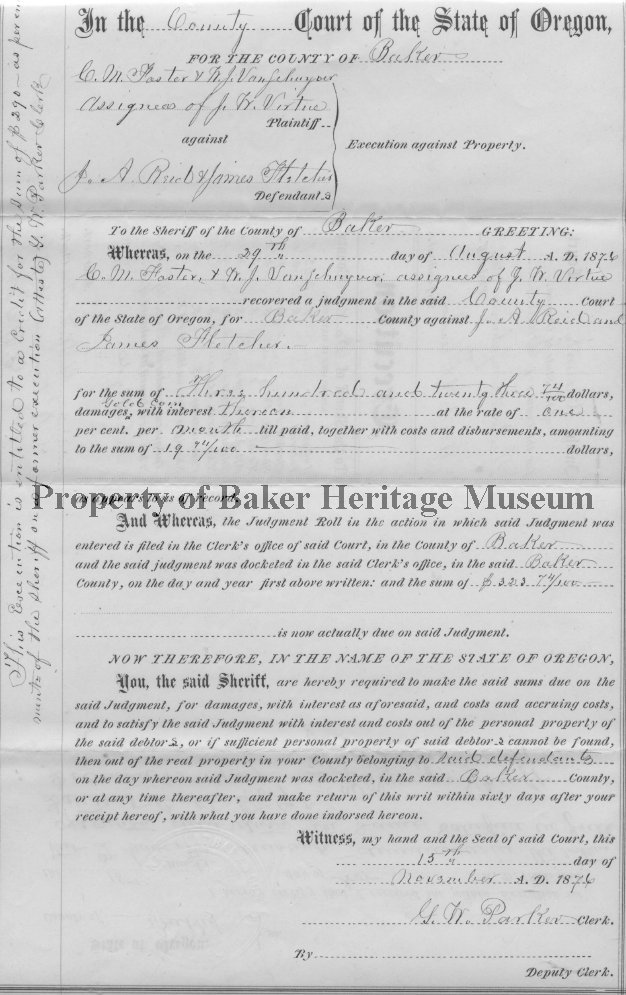 In the County Court of the State of Oregon,
FOR THE COUNTY OF Baker
C. M. Foster & W. J. VanSchuyver
Assignees of J. W. Virtue
Plaintiff
against
Execution against Property.
J. A. Reid & James Fletcher
Defendants
To the Sheriff of the County of Baker GREETING:
Whereas, on the 29th day of August A. D. 1876
C. M. Foster, & W. J. VanSchuyver, assignees of J. W. Virtue
recovered a judgment in the said County Court
of the State of Oregon, for Baker County against J. A. Reid and
James Fletcher.
for the sum of Three hundred and twenty three 74/100 dollars,
Gold Coin
damages, with interest thereon at the rate of one
per cent. per month till paid, together with costs and disbursements, amounting
to the sum of 19 74/100 dollars,
as appears to us of record.
Property of Baker Heritage Museum
And Whereas, the Judgment Roll in the action in which said Judgment was
entered is filed in the Clerk's office of said Court, in the County of Baker
and the said judgment was docketed in the said Clerk's office, in the said Baker
County, on the day and year first above written: and the sum of $323 74/100
is now actually due on said Judgment.
NOW THEREFORE, IN THE NAME OF THE STATE OF OREGON,
You, the said Sheriff, are hereby required to make the said sums due on the
said Judgment, for damages, with interest as aforesaid, and costs and accruing costs,
and to satisfy the said Judgment with interest and costs out of the personal property of
the said debtors, or if sufficient personal property of said debtors cannot be found,
then out of the real property in your County belonging to said defendants
on the day whereon said Judgment was docketed, in the said Baker County,
or at any time thereafter, and make return of this writ within sixty days after your
receipt hereof, with what you have done indorsed hereon.
Witness, my hand and the Seal of said Court, this
15th day of
November A. D. 1876
G. W. Parker Clerk.
By
Deputy Clerk.
This Execution is entitled to a credit for the sum of $290 as per
of the Sheriff on a former execution (attest) G. W. Parker Clerk